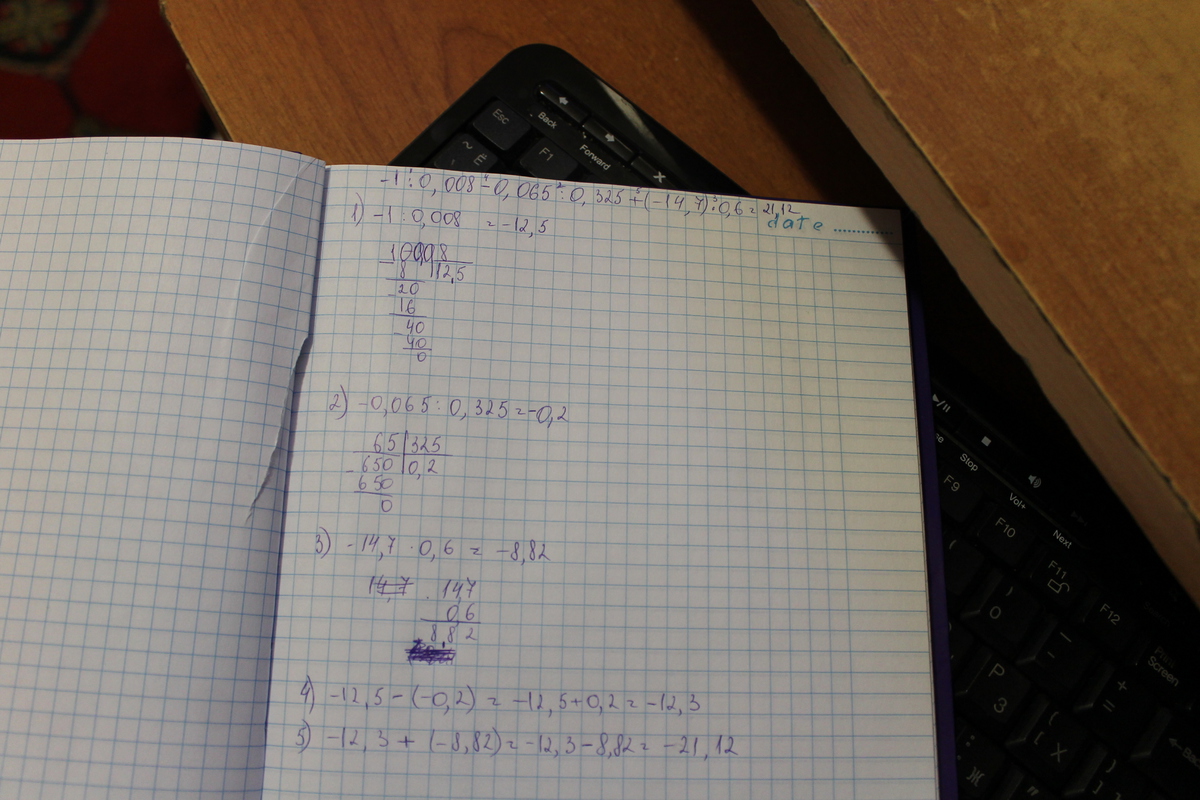 -1 : 0,008 - 0,065 : 0,325 + (-14,7) · 0,6 = 21,12
date ............
1) -1 : 0,008 = -12,5
1000 8
8 12,5
-20
16
40
40
0
2) -0,065 : 0,325 = -0,2
65 325
-650 0,2
650
0
3) -14,7 · 0,6 = -8,82
14,7 14,7
0,6
8,82
4) -12,5 - (-0,2) = -12,5 + 0,2 = -12,3
5) -12,3 + (-8,82) = -12,3 - 8,82 = -21,12
Esc
Back
Forward
~ Ё
F1
Stop
F9
Vol+
F10
Next
F11
F12
)
0
P
З
Screen
+
=
{
[ Х
Ж